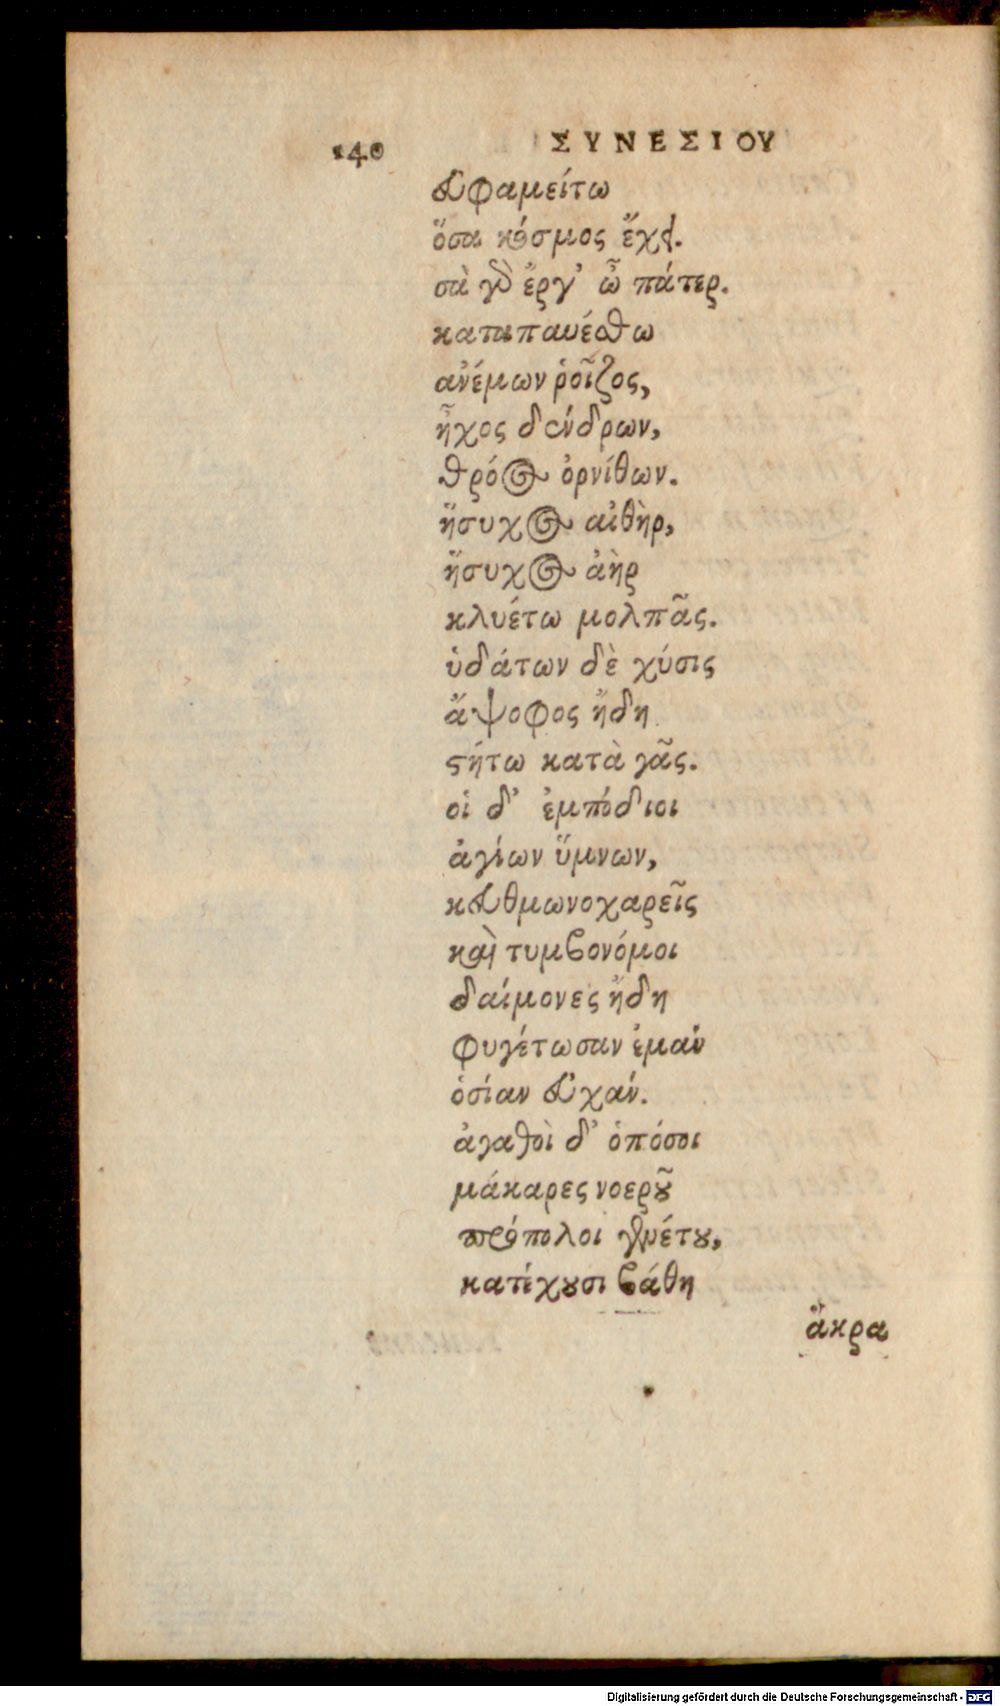 140 ΣΥΝΕΣΙΟΥ
εὐφαμείτω
ὅσα κόσμος ἔχει.
σὰ γὰρ ἔργ' ὦ πάτερ.
καταπαυέσθω
ἀνέμων ῥοῖζος,
ἦχος δένδρων,
θρόος ὀρνίθων.
ἥσυχος αἰθὴρ,
ἥσυχος ἀὴρ
κλυέτω μολπᾶς.
ὑδάτων δὲ χύσις
ἄψοφος ἤδη
στήτω κατὰ γᾶς.
οἱ δ' ἐμπόδιοι
ἁγίων ὕμνων,
κευθμωνοχαρεῖς
καὶ τυμβονόμοι
δαίμονες ἤδη
φυγέτωσαν ἐμὰν
ὁσίαν εὐχάν.
ἀγαθοὶ δ' ὁπόσοι
μάκαρες νοεροῦ
πρόπολοι γενέτου,
κατέχουσι βάθη
ἄκρα
Digitalisierung gefördert durch die Deutsche Forschungsgemeinschaft - DFG